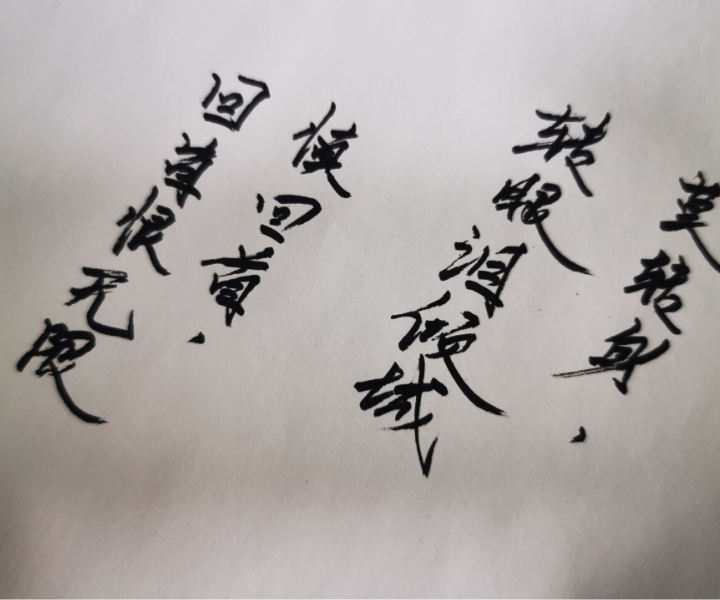 莫转身，
转眼泪倾城
回首，
回首恨无